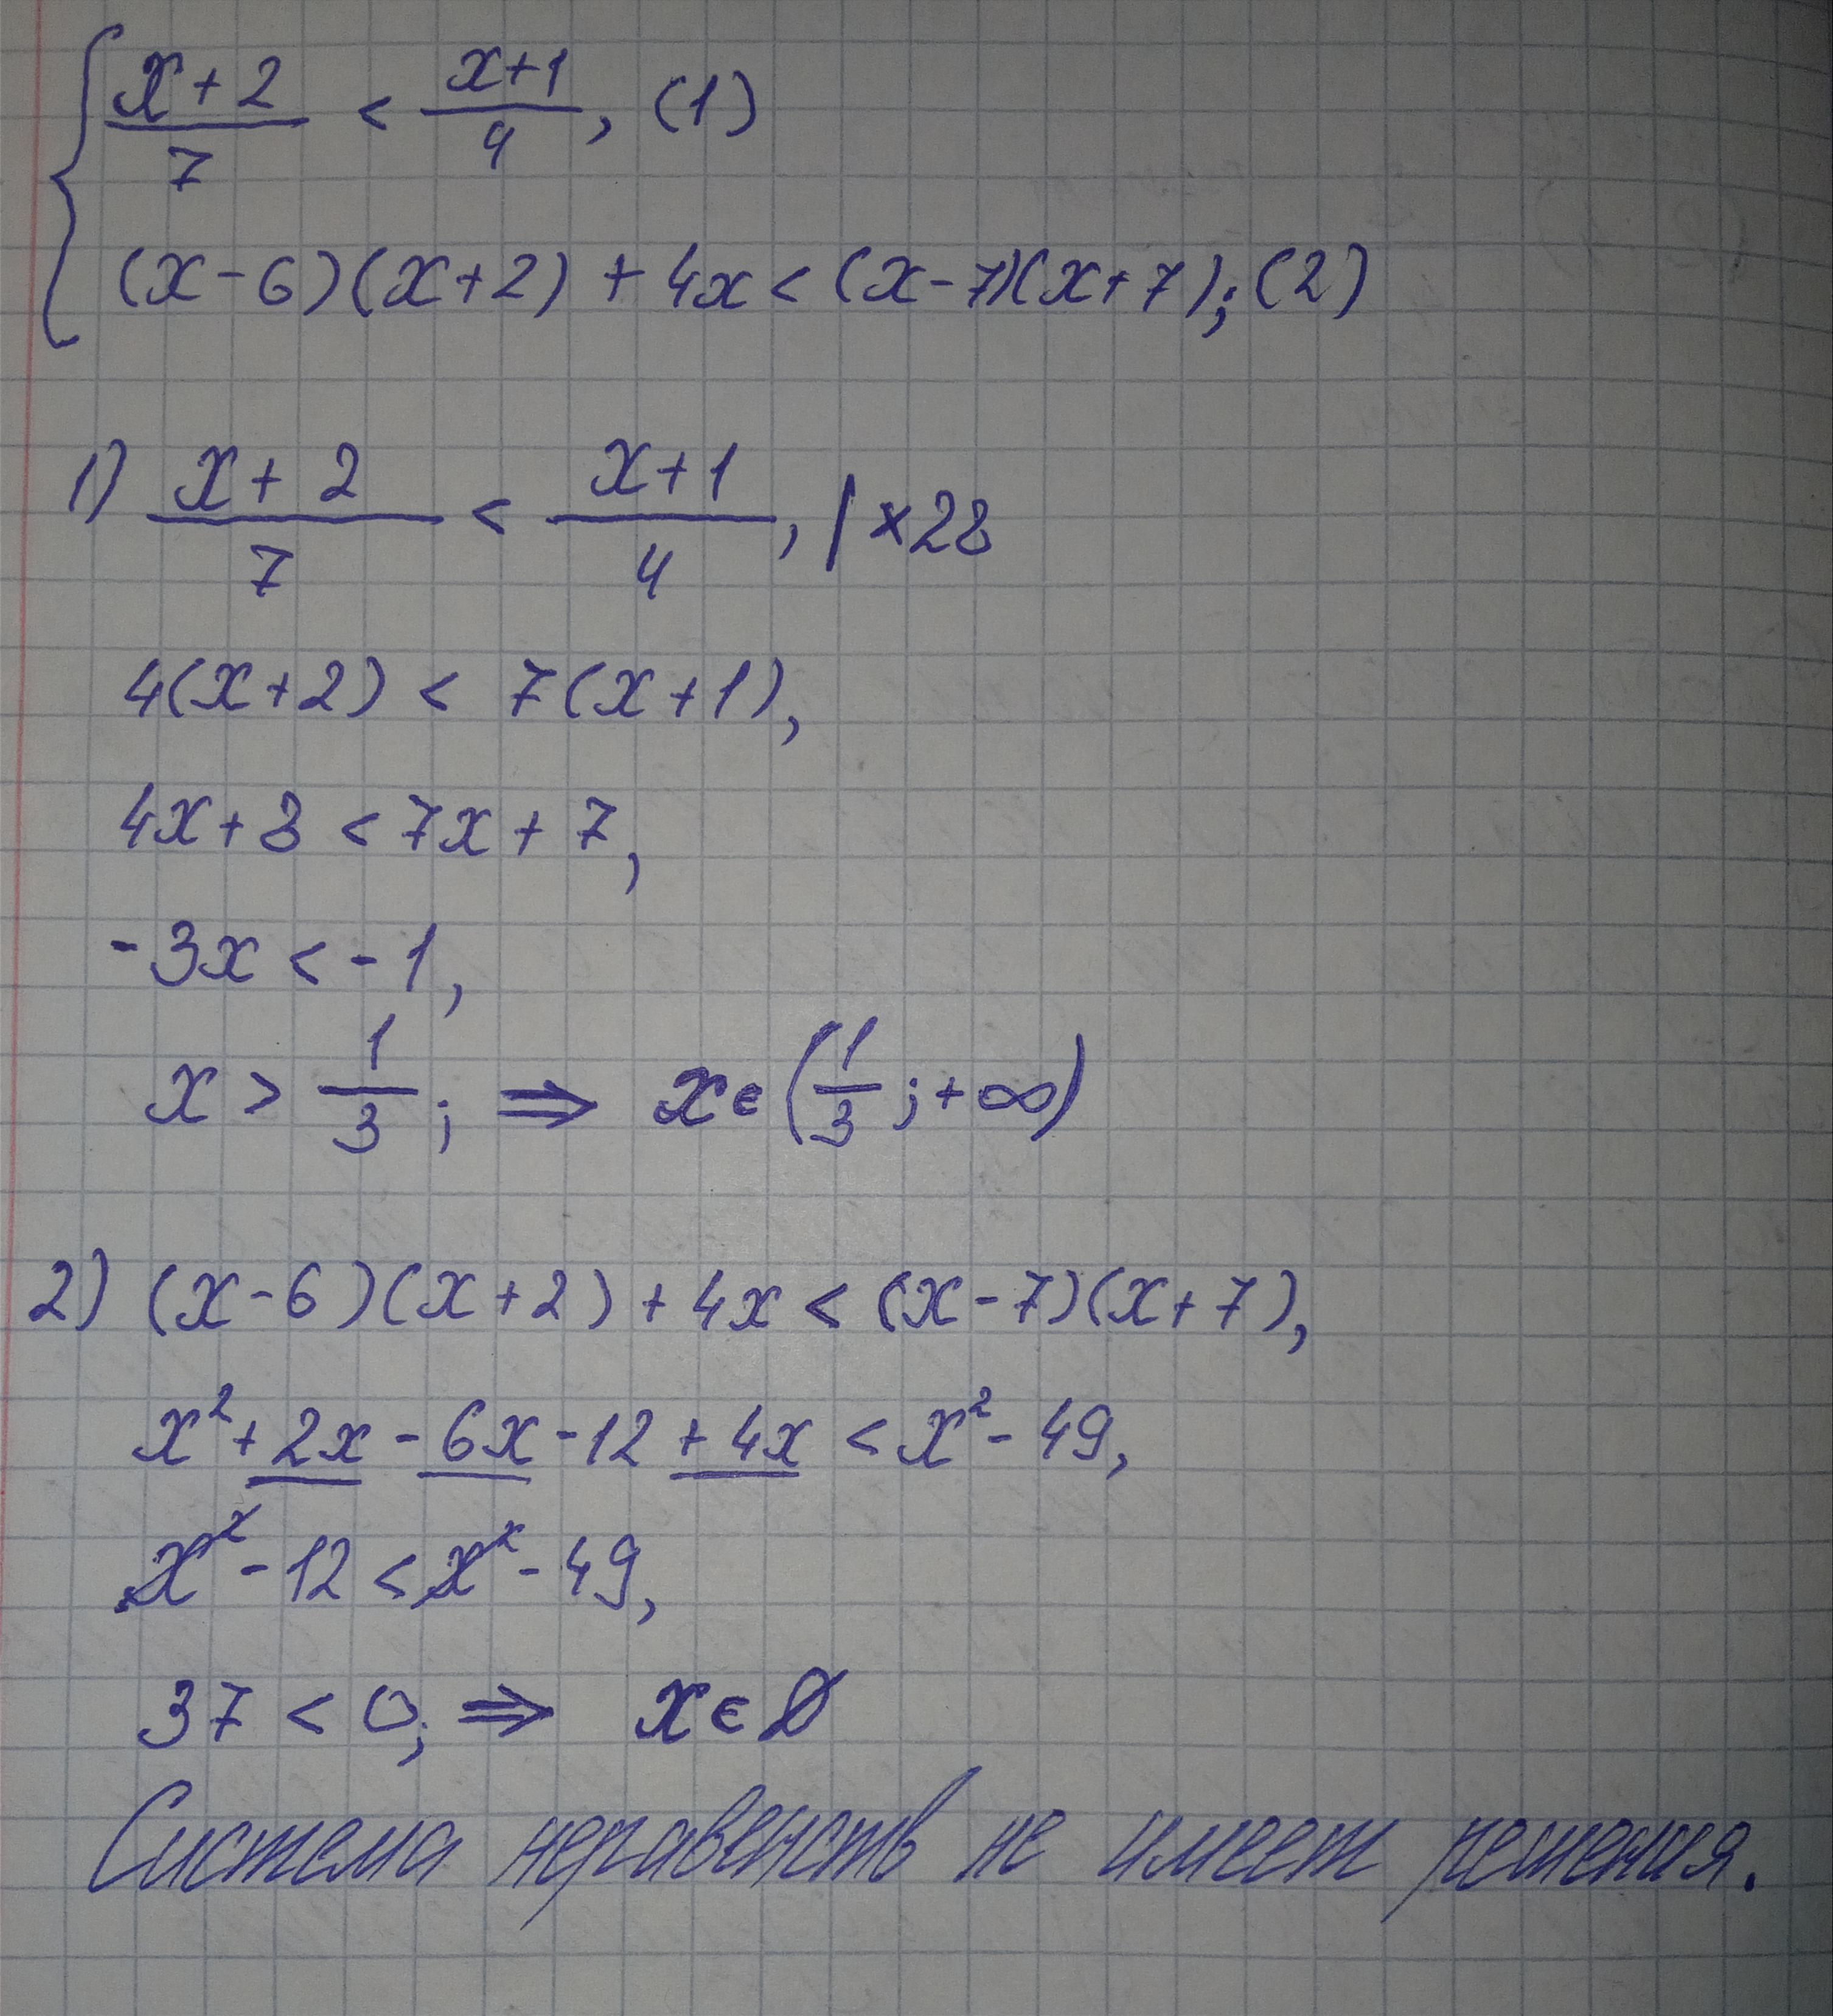 { (x+2)/7 < (x+1)/4, (1)
(x-6)(x+2) + 4x < (x-7)(x+7); (2)
1) (x+2)/7 < (x+1)/4, | ×28
4(x+2) < 7(x+1),
4x+8 < 7x+7,
-3x < -1,
x > 1/3; ⇒ x∈(1/3; +∞)
2) (x-6)(x+2) + 4x < (x-7)(x+7),
x²+2x-6x-12+4x < x²-49,
x²-12 < x²-49,
37 < 0; ⇒ x∈∅
Система неравенств не имеет решения.